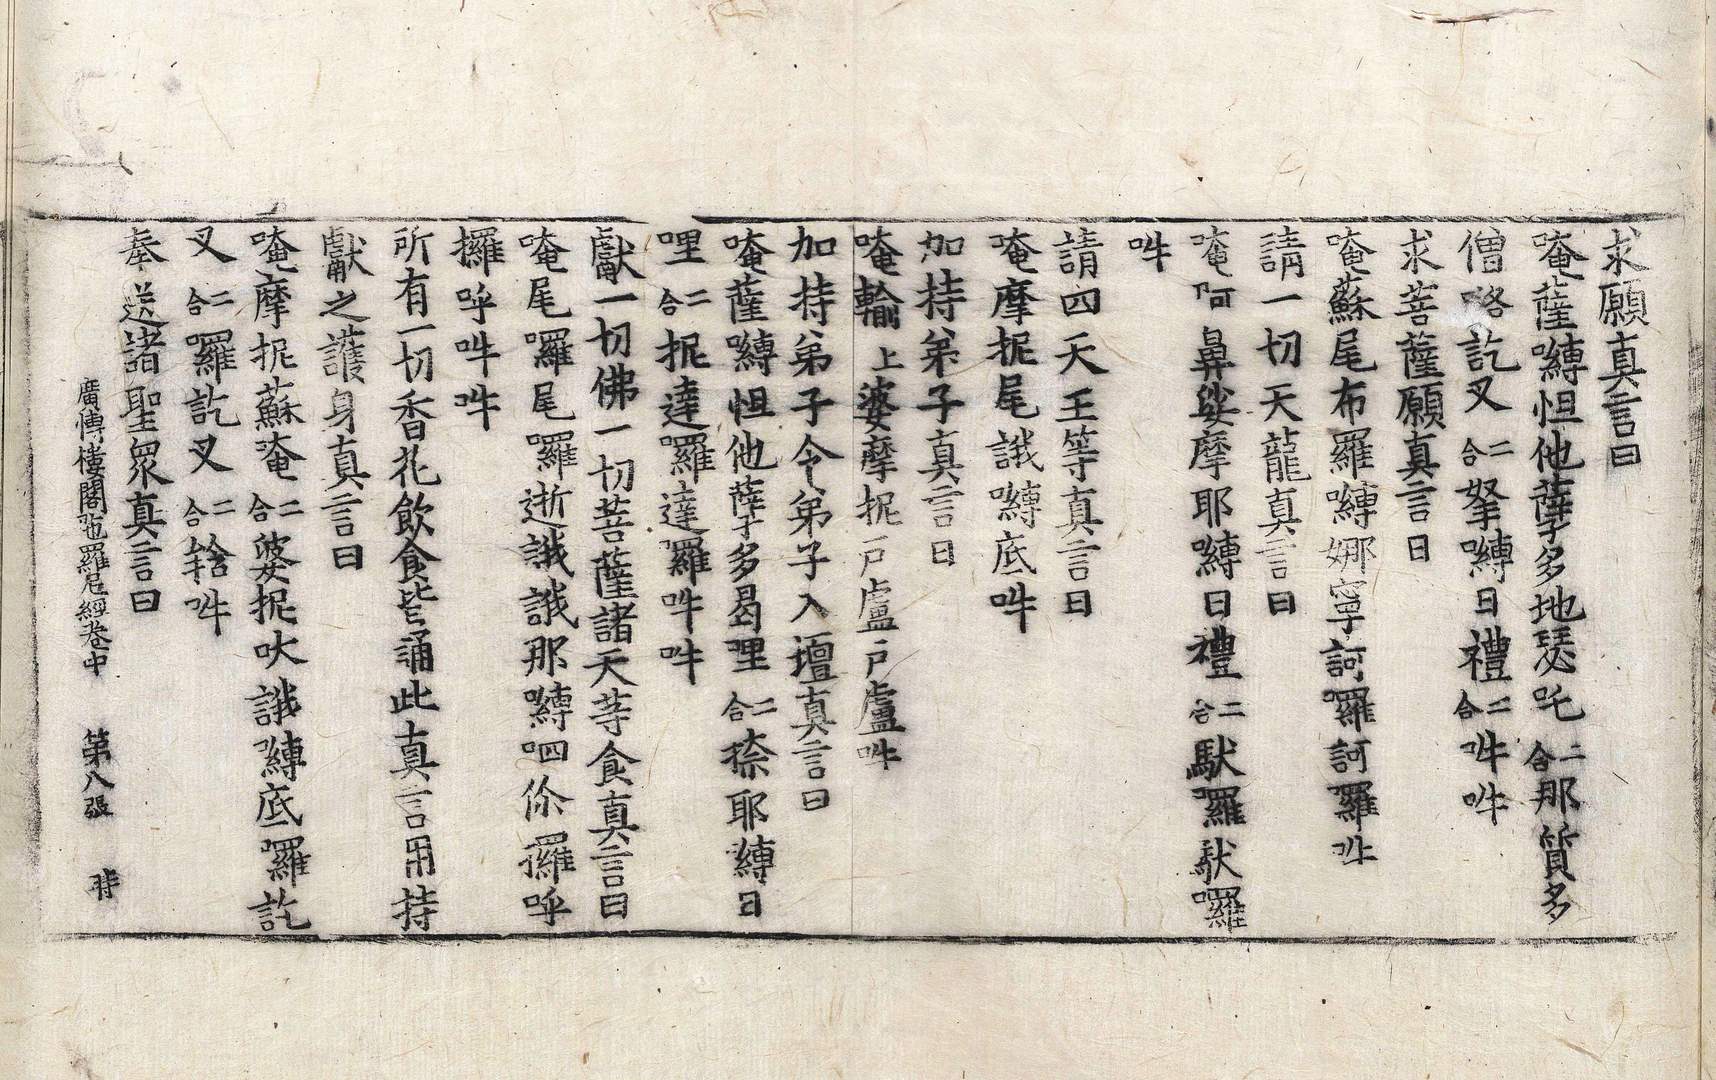 求願真言曰
唵薩嚩怛他孽多地瑟吒二合那質多
僧咯訖叉二合拏嚩日禮二合吽吽
求菩薩願真言曰
唵蘇尾布羅嚩娜寧訶羅訶羅吽
請一切天龍真言曰
唵阿鼻娑摩耶嚩日禮二合馱羅馱囉
吽
請四天王等真言曰
唵摩抳尾誐嚩底吽
加持弟子真言曰
唵輸上婆摩抳戶盧戶盧吽
加持弟子令弟子入壇真言曰
唵薩嚩怛他孽多曷哩二合捺耶嚩日
哩二合抳達囉達囉吽吽
獻一切佛一切菩薩諸天等食真言曰
唵尾囉尾囉逝誐誐那嚩呬你攞呼
攞呼吽吽
所有一切香花飲食皆誦此真言用持
獻之護身真言曰
唵摩抳蘇唵二合婆抳吠誐嚩底囉訖
叉二合囉訖叉二合𤚥吽
奉送諸聖眾真言曰
廣博樓閣陀羅尼經卷中 第八張 時